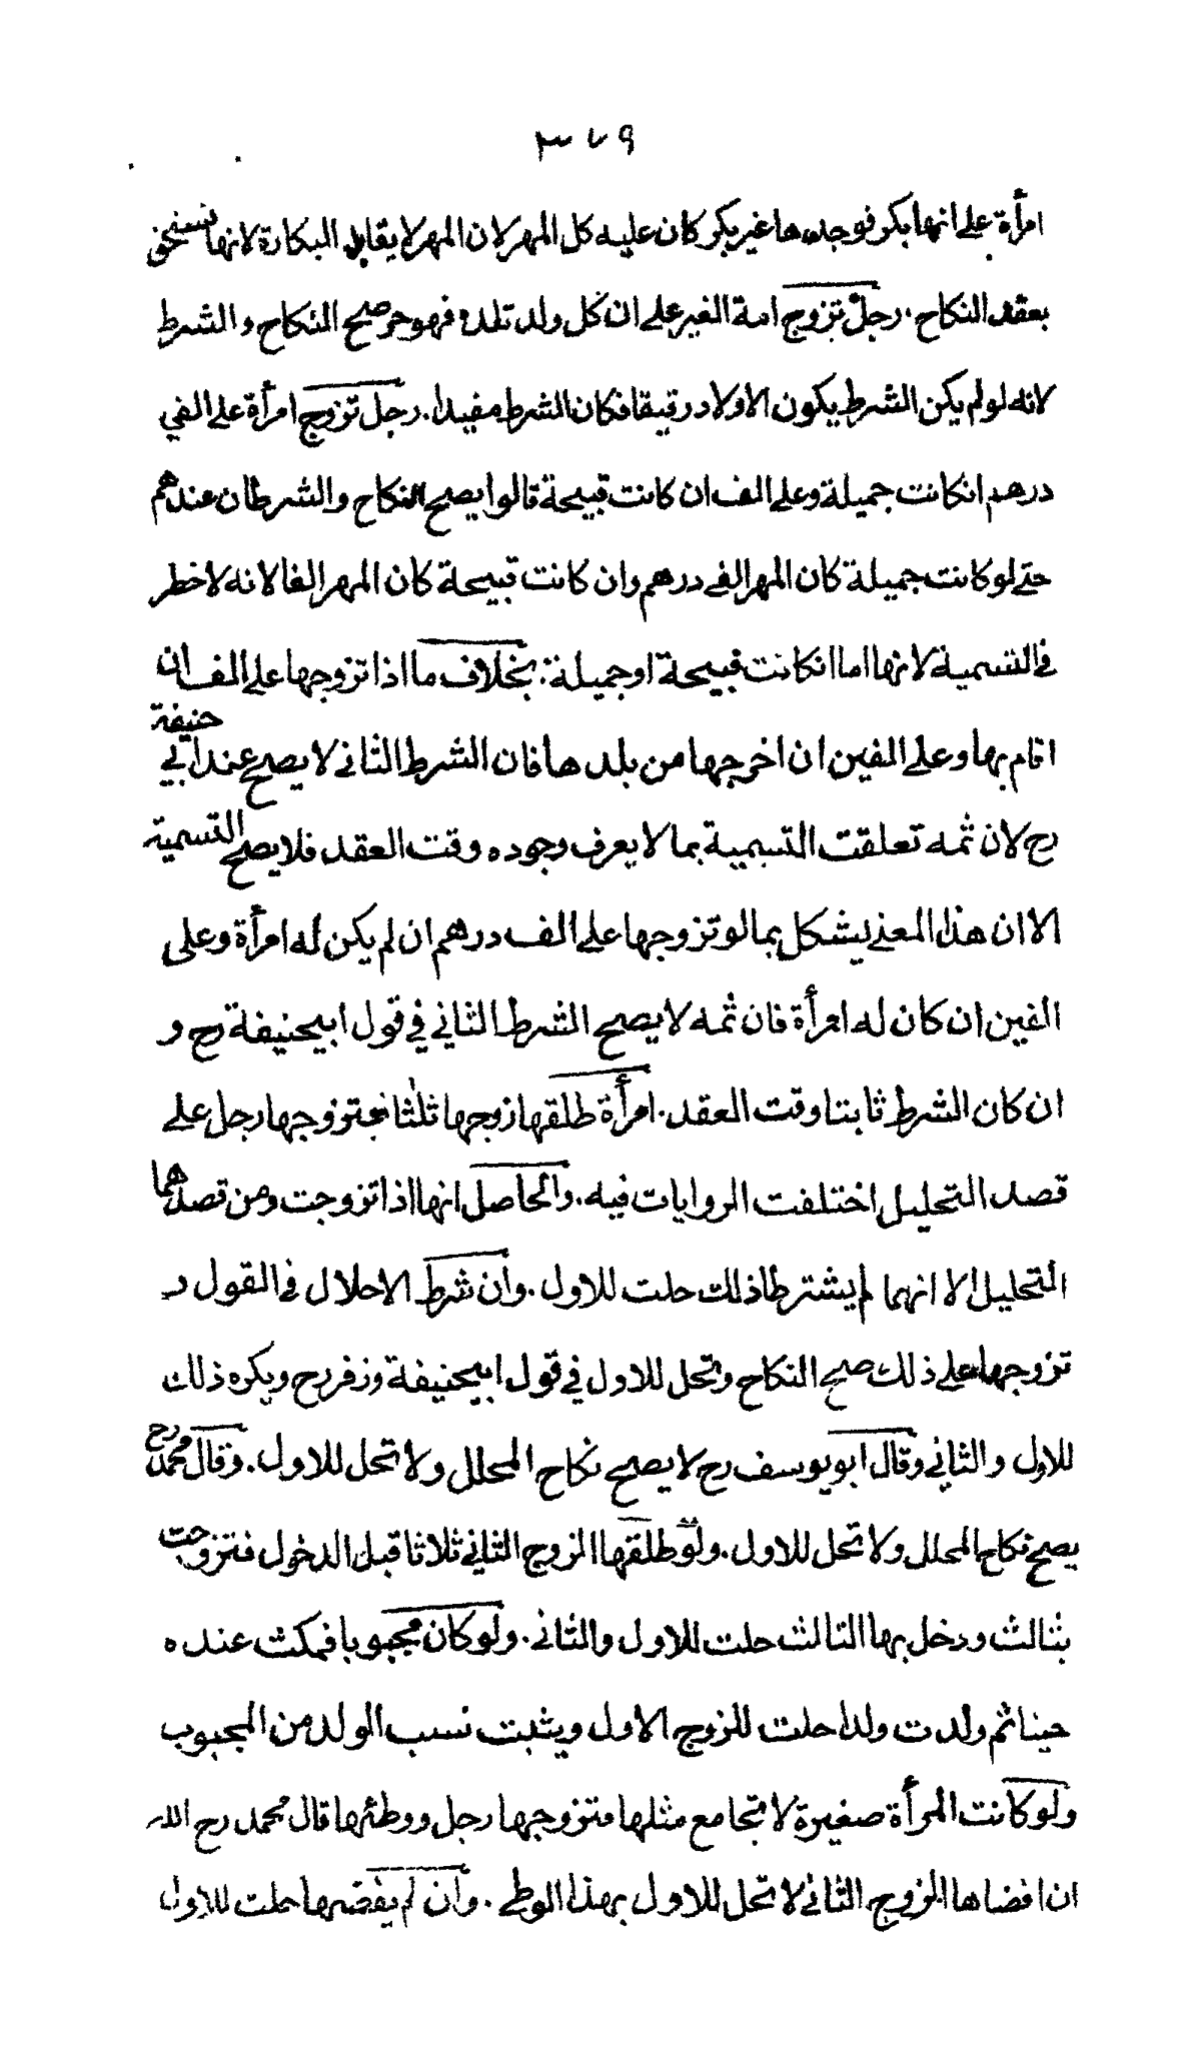 ٣٧٩
امرأة على انها بكر فوجدها غير بكر كان عليه كل المهر لان المهر لا يقابل البكارة لانها تستحق
بعقد النكاح . رجل تزوج امة الغير على ان كل ولد تلده فهو حر صح النكاح والشرط
لانه لو لم يكن الشرط يكون الاولاد رقيقا فكان الشرط مفيدا . رجل تزوج امرأة على الفي
درهم انكانت جميلة وعلى الف ان كانت قبيحة قالوا يصح النكاح والشرطان عندهم
حتى لو كانت جميلة كان المهر الفي درهم وان كانت قبيحة كان المهر الفا لانه لا خطر
في التسمية لانها اما انكانت قبيحة او جميلة . بخلاف ما اذا تزوجها على الف ان
اقام بها وعلى الفين ان اخرجها من بلدها فان الشرط الثاني لا يصح عند ابي حنيفة
رح لان ثمه تعلقت التسمية بما لا يعرف وجوده وقت العقد فلا يصح التسمية
الا ان هذا المعنى يشكل بما لو تزوجها على الف درهم ان لم يكن له امرأة وعلى
الفين ان كان له امرأة فان ثمه لا يصح الشرط الثاني في قول ابيحنيفة رح و
ان كان الشرط ثابتا وقت العقد . امرأة طلقها زوجها ثلثا فتزوجها رجل على
قصد التحليل اختلفت الروايات فيه . والحاصل انها اذا تزوجت ومن قصدهما
التحليل الا انهما لم يشترطا ذلك حلت للاول . وان شرط الاحلال في القول و
تزوجها على ذلك صح النكاح وتحل للاول في قول ابيحنيفة وزفر رح ويكره ذلك
للاول والثاني وقال ابو يوسف رح لا يصح نكاح المحلل ولا تحل للاول . وقال محمد رح
يصح نكاح المحلل ولا تحل للاول . ولو طلقها الزوج الثاني ثلاثا قبل الدخول فتزوجت
بثالث ودخل بها الثالث حلت للاول والثاني . ولو كان مجبوبا فمكث عنده
حينا ثم ولدت ولدا حلت للزوج الاول ويثبت نسب الولد من المجبوب
ولو كانت المرأة صغيرة لا تجامع مثلها فتزوجها رجل ووطئها قال محمد رح الله
ان افضاها الزوج الثاني لا تحل للاول بهذا الوطي . وان لم يفضها حلت للاول